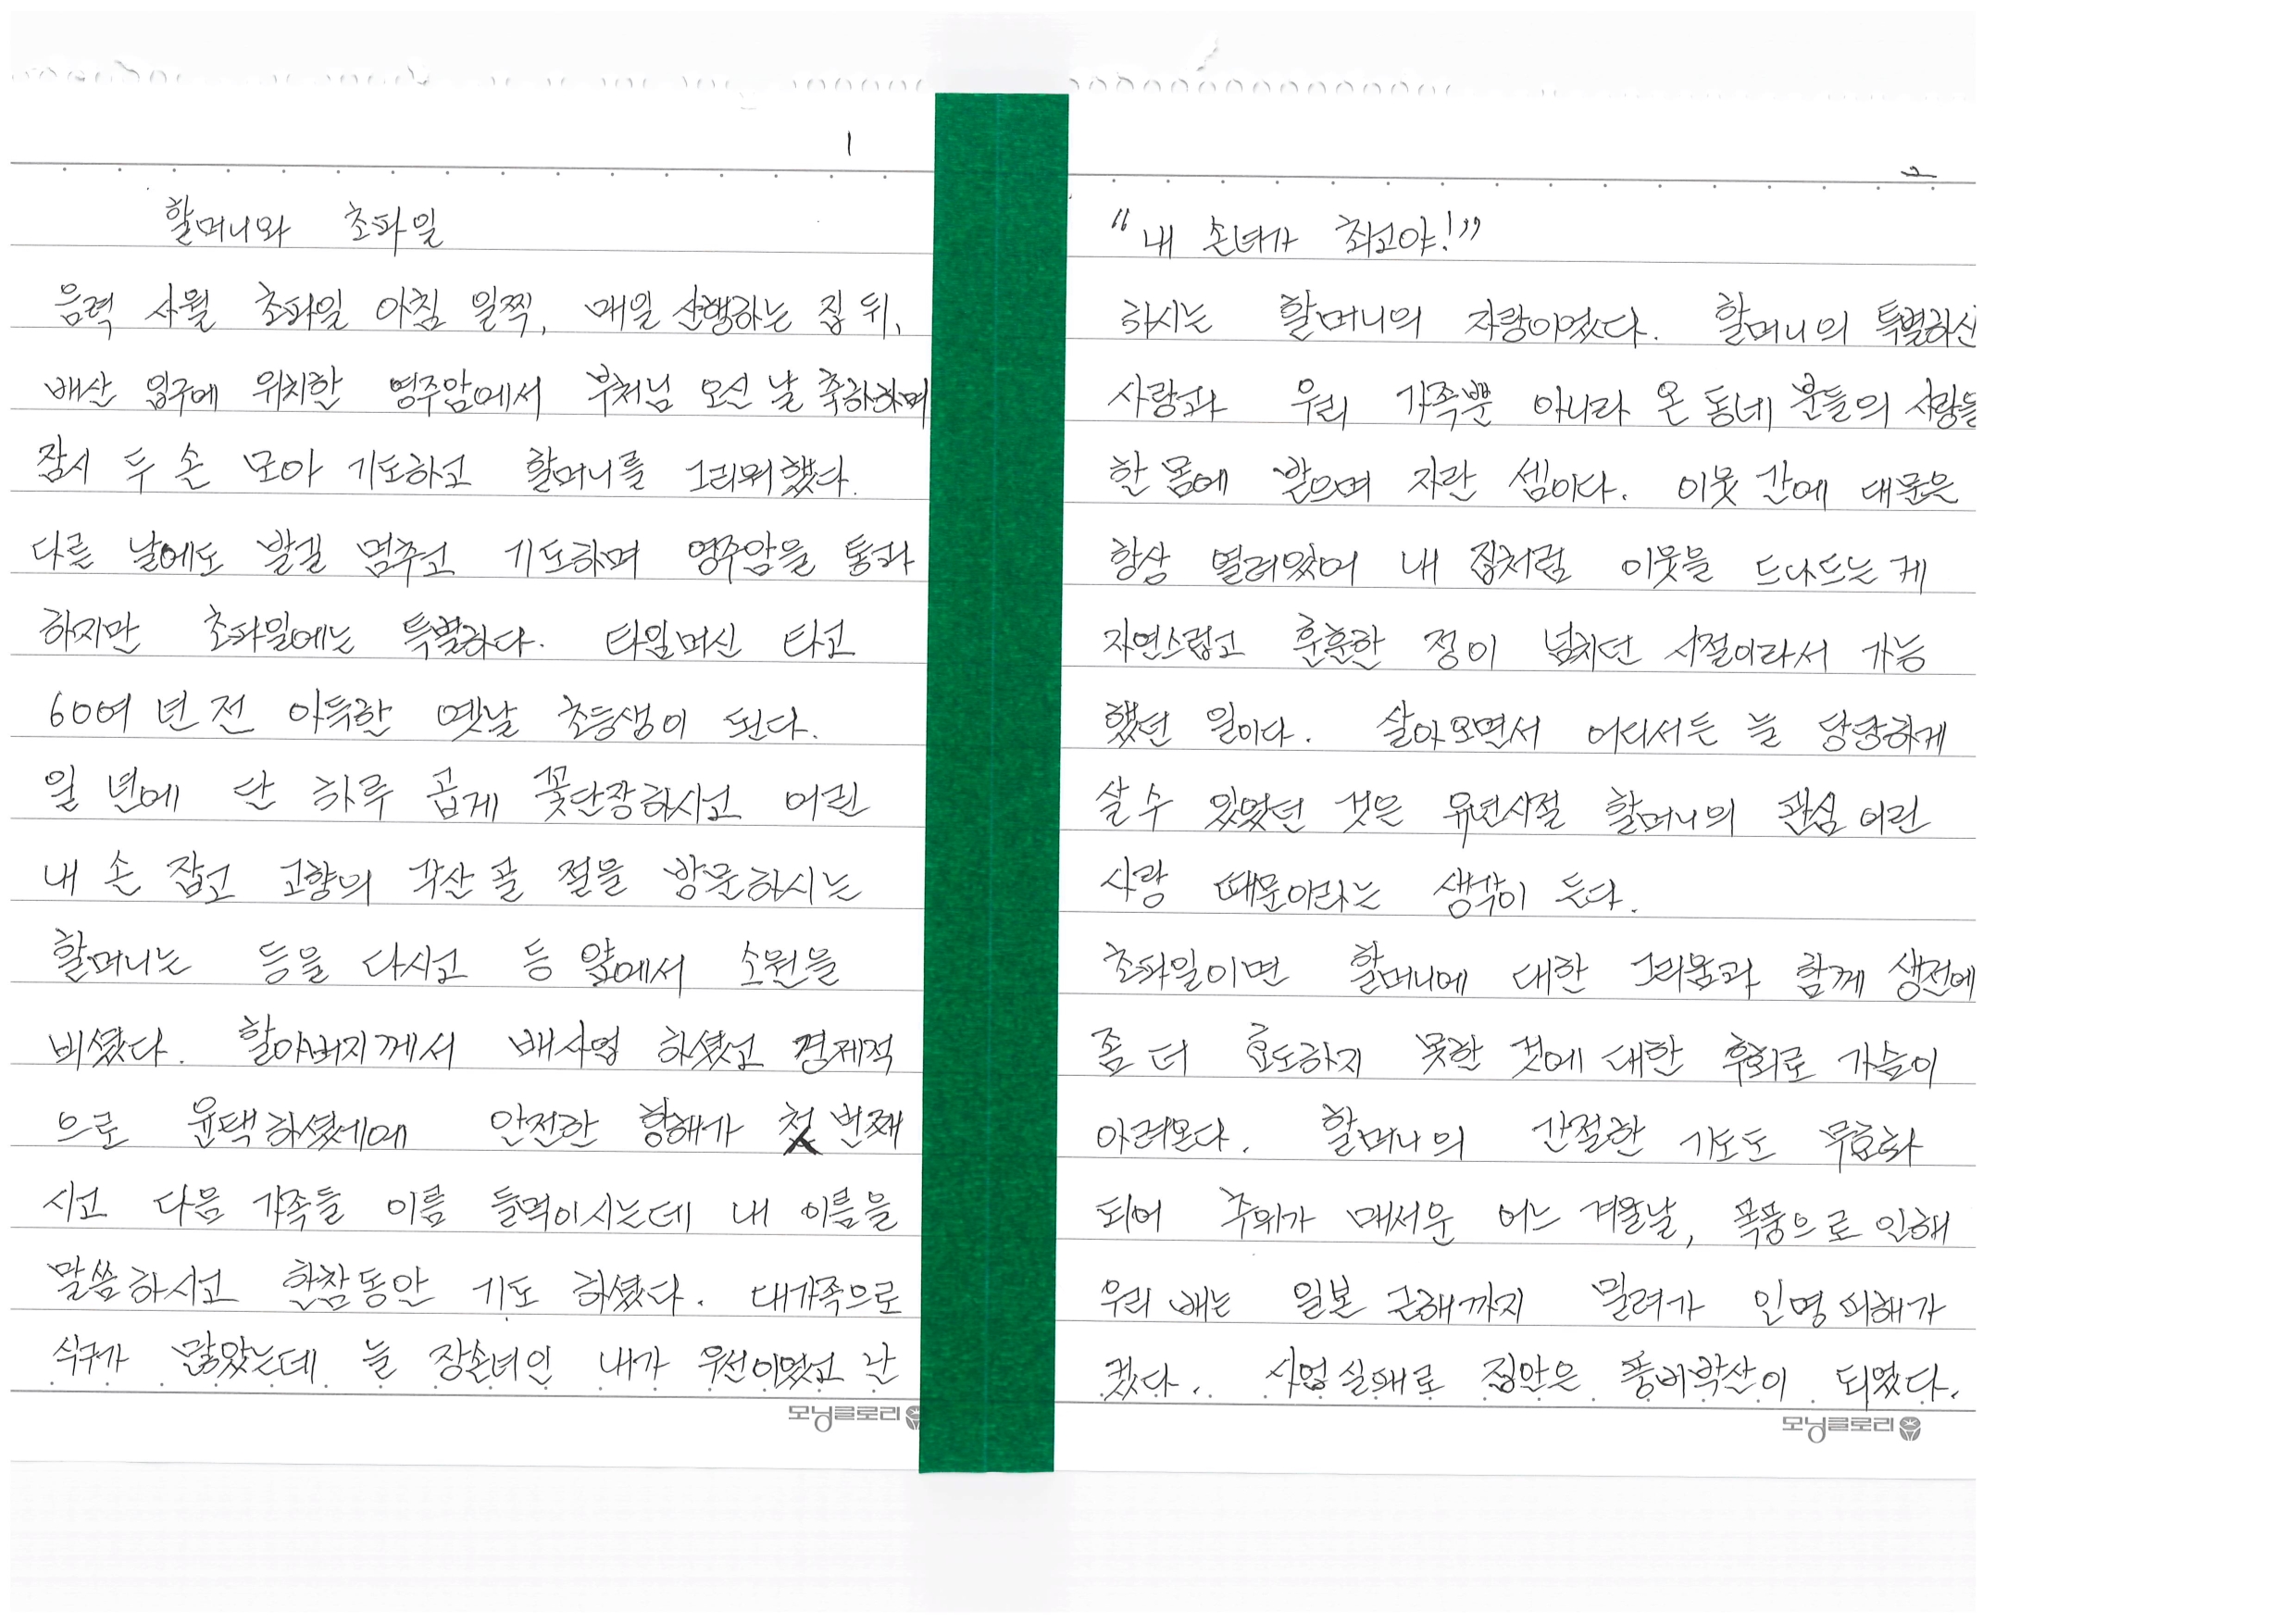 1
할머니와 초파일
음력 사월 초파일 아침 일찍, 매일 산행하는 집 뒤,
배산 입구에 위치한 영주암에서 부처님 오신 날 축하하며
잠시 두 손 모아 기도하고 할머니를 그리워했다.
다른 날에도 발길 멈추고 기도하며 영주암을 통과
하지만 초파일에는 특별하다. 타임머신 타고
60여 년 전 아득한 옛날 초등생이 된다.
일 년에 단 하루 곱게 꽃단장하시고 어린
내 손 잡고 고향의 각산 골 절을 방문하시는
할머니는 등을 다시고 등 앞에서 소원을
비셨다. 할아버지께서 배사업 하셨고 경제적
으로 윤택하셨기에 안전한 항해가 첫 번째
시고 다음 가족들 이름 들먹이시는데 내 이름을
말씀하시고 한참동안 기도 하셨다. 대가족으로
식구가 많았는데 늘 장손녀인 내가 우선이였고 난
모닝글로리
2
“내 손녀가 최고야!”
하시는 할머니의 자랑이었다. 할머니의 특별하신
사랑과 우리 가족뿐 아니라 온 동네 분들의 사랑을
한 몸에 받으며 자란 셈이다. 이웃 간에 대문은
항상 열려있어 내 집처럼 이웃을 드나드는 게
자연스럽고 훈훈한 정이 넘치던 시절이라서 가능
했던 일이다. 살아오면서 어디서든 늘 당당하게
살 수 있었던 것은 유년시절 할머니의 관심 어린
사랑 때문이라는 생각이 든다.
초파일이면 할머니에 대한 그리움과 함께 생전에
좀 더 효도하지 못한 것에 대한 후회로 가슴이
아려온다. 할머니의 간절한 기도도 무효화
되어 추위가 매서운 어느 겨울날, 폭풍으로 인해
우리 배는 일본 근해까지 밀려가 인명 피해가
컸다. 사업 실패로 집안은 풍비박산이 되었다.
모닝글로리